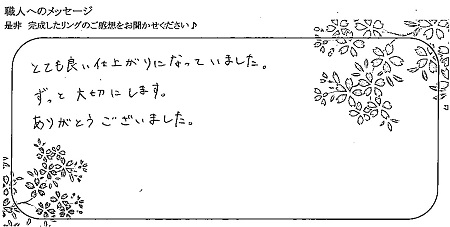 職人へのメッセージ
是非 完成したリングのご感想をお聞かせください♪
とても良い仕上がりになっていました。
ずっと大切にします。
ありがとうございました。